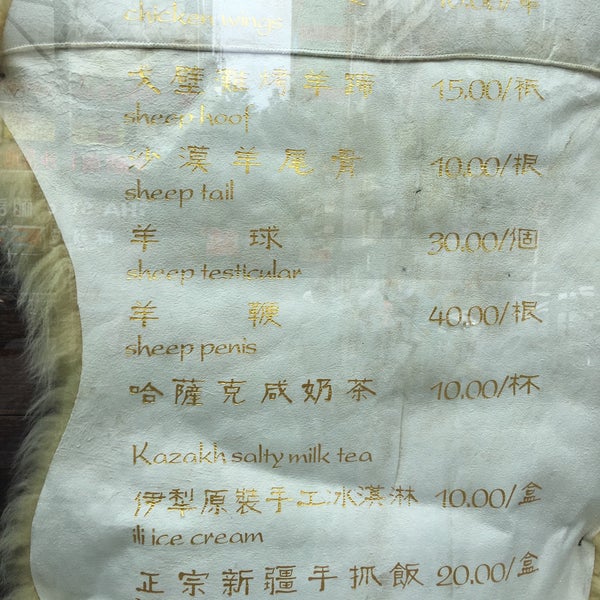 chicken wings
戈壁 烤羊蹄 15.00/祇
sheep hoof
沙漠羊尾骨 10.00/根
sheep tail
羊 球 30.00/個
sheep testicular
羊 鞭 40.00/根
sheep penis
哈薩克咸奶茶 10.00/杯
Kazakh salty milk tea
伊犁原裝手工冰淇淋 10.00/盒
ili ice cream
正宗新疆手抓飯 20.00/盒